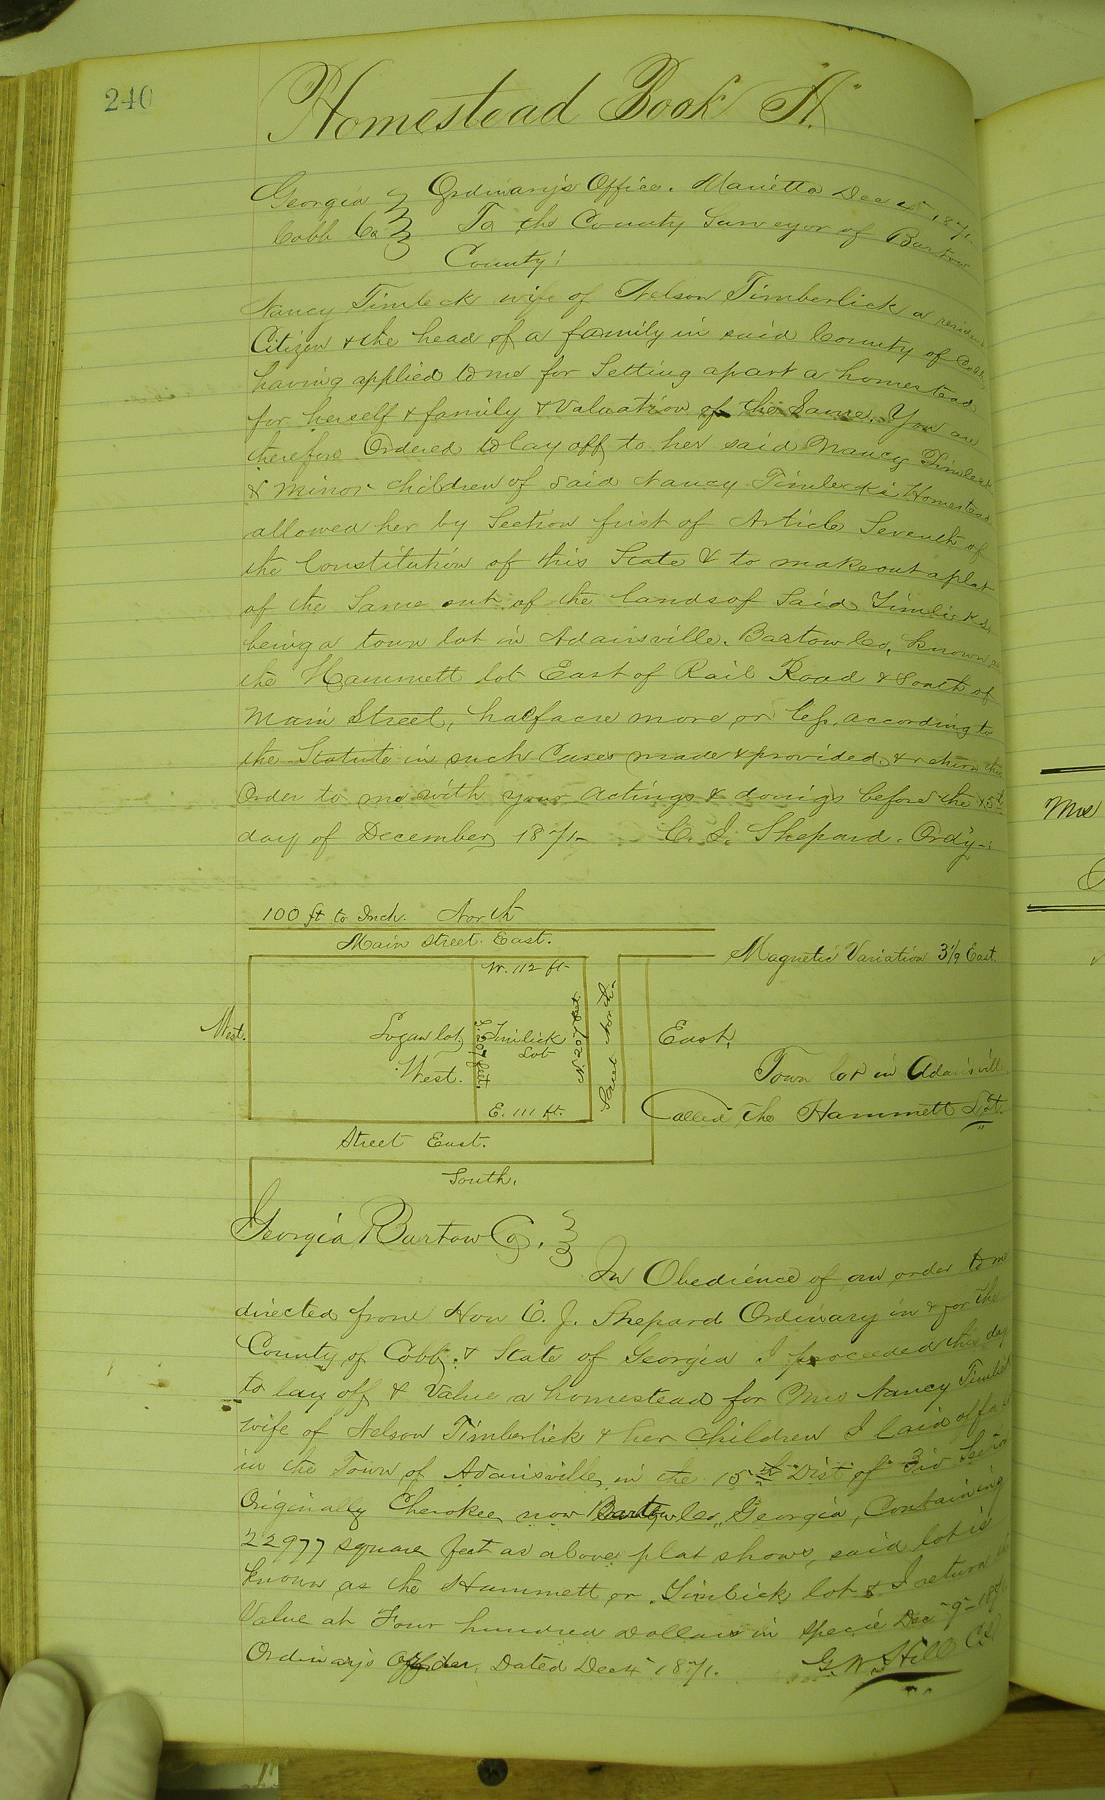 240
Homestead Book "A"
Georgia Ordinary's Office. Marietta Dec 4th 1871-
Cobb Co To the County Surveyor of Bartow
County:
Nancy Timleck wife of Nelson Timberlick a
Citizen & the head of a family in said County of Cobb
having applied to me for Setting apart a homestead
for herself & family & Valuation of the Same. You are
therefore Ordered to lay off to her said Nancy
& minor children of said Nancy Homestead
allowed her by Section first of Article Seventh of
the Constitution of this State & to make out a plat
of the Same out of the lands of Said
being a town lot in Adairsville, Bartow Co, known as
the Hammett lot East of Rail Road & South of
Main Street, half acre more or less, according to
the Statute in such Cases made & provided, & return this
Order to me with your actings & doings before the 15th
day of December 1871- C. J. Shepard. Ordy-
100 ft to Inch. North
Main Street East.
Magnetic Variation East
W. 112 ft
West.
Logan lot
West.
S. 207 feet.
Timlick
Lot
N. 207 feet
Street North
East,
E. 111 ft.
Town lot in Adairsville
Called The Hammett Lot.
Street East.
South,
Georgia Bartow Co.
In Obedience of an order to me
directed from Hon C. J. Shepard Ordinary in & for the
County of Cobb & State of Georgia I proceeded this day
to lay off & Value a homestead for Mrs Nancy
wife of Nelson Timberlick & her children I laid off
in the Town of Adairsville in the 15th Dist of 3rd Section
Originally Cherokee now Bartow Co, Georgia, Containing
22977 square feet as above plat shows, said lot is
known as the Hammett or Timlick lot & I return
Value at Four hundred Dollars in specie Dec 9 1871
Ordinary's Order, Dated Dec 4 1871. G. W. Hill C.S.
Mrs